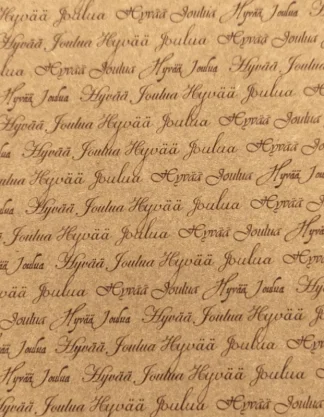 Hyvää Joulua Hyvää Joulua Hyvää Joulua
Hyvää, Joulua Hyvää Joulua Hyvää Joulua
Hyvää Joulua Hyvää Joulua Hyvää, Joulua
Hyvää Joulua Hyvää, Joulua Hyvää Joulua
Hyvää, Joulua Hyvää Joulua Hyvää Joulua
Hyvää, Joulua Hyvää Joulua Hyvää Joulua
Joulua Hyvää Joulua Hyvää Joulua Hyvää
Joulua Hyvää, Joulua Hyvää Joulua
Joulua Hyvää Joulua Hyvää Joulua Hyvää
Joulua Hyvää, Joulua Hyvää Joulua
Joulua Hyvää Joulua Hyvää Joulua
Joulua Hyvää Joulua Hyvää, Joulua
Joulua Hyvää, Joulua Hyvää Joulua
Hyvää Joulua Hyvää, Joulua Hyvää
Hyvää Joulua Hyvää Joulua Hyvää Joulua